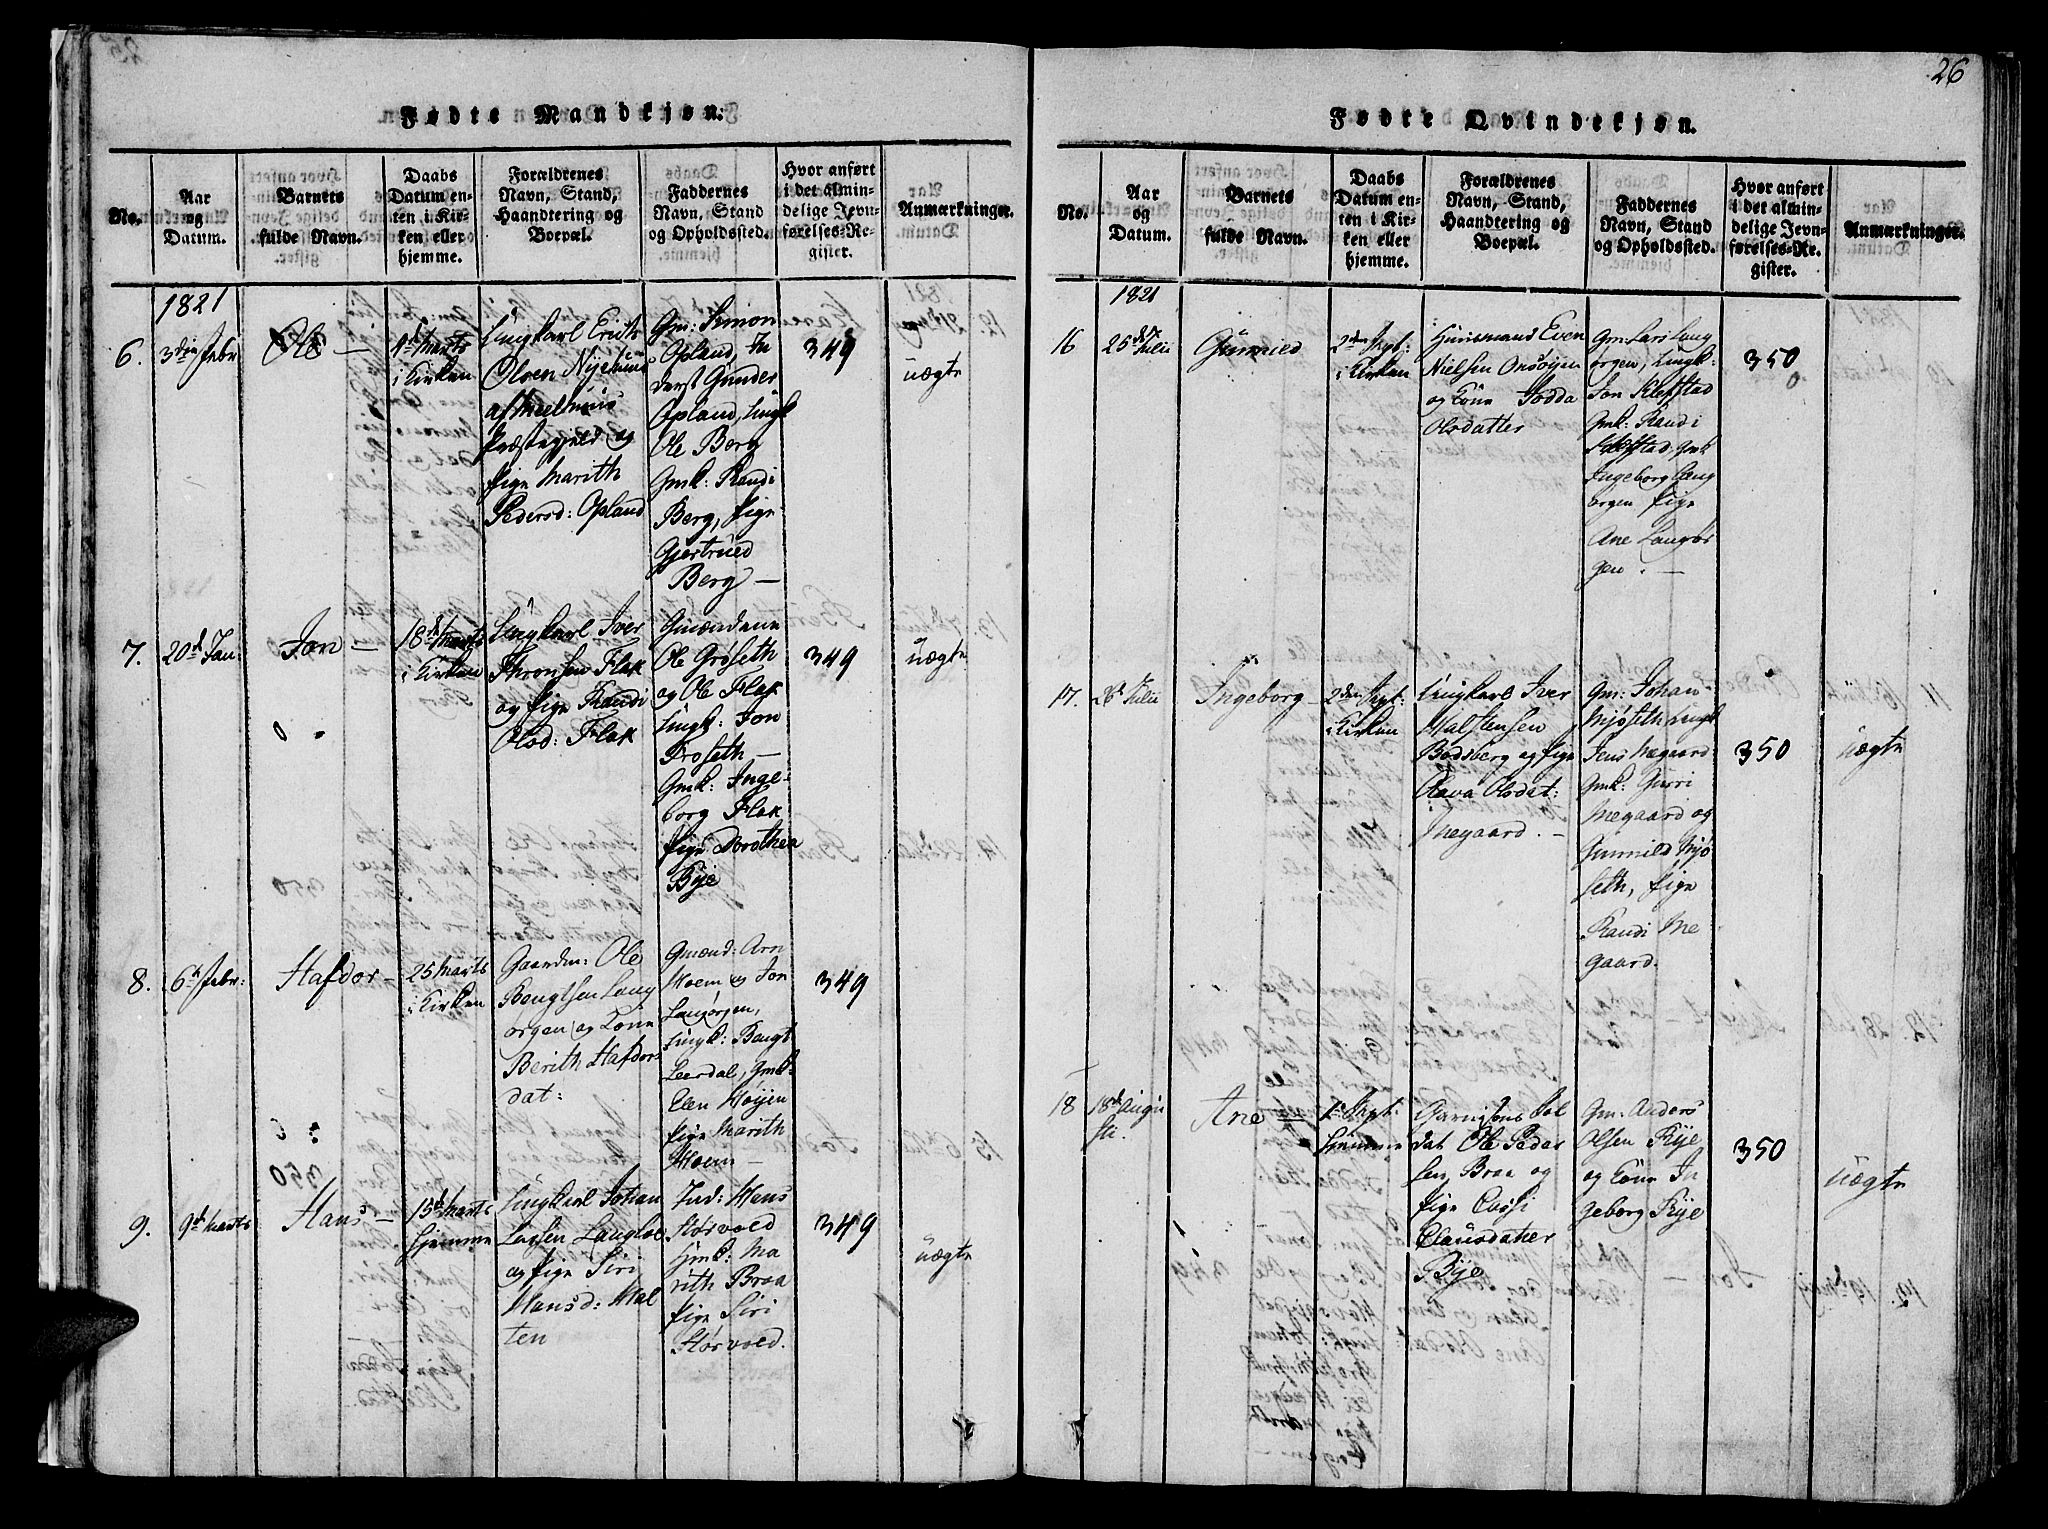 26
Fødte Mandkjøn.
No.
Aar
og
Datum.
Barnets
fulde Navn.
Daabs
Datum en-
ten i Kir-
ken eller
hjemme.
Forældrenes
Navn, Stand,
Haandtering og
Boepæl.
Faddernes
Navn, Stand
og Opholdssted.
Hvor anført
i det almin-
delige Jevn-
førelses-Re-
gister.
Anmærkninger.
1821
6.
3die Febr
Ole —
4d Marts
i Kirken
Ungkarl Erich
Olsen
af Meelhuus
Præstegjeld og
Pige Marith
Pedersd: Opland
Gm: Simon
Opland, In
derst Gunder
Opland, Ungk
Ole Berg
Gmk: Randi
Berg, Pige
Gjertrued
Berg —
349
uægte
7.
20d Jan:
Jon —
18d Marts
i Kirken
Ungkarl Iver
Thronsen Flak
og Pige Randi
Olsd: Flak
Gmændene
Ole Grøseth
og Ole Flak
Ungk: Jon
Froseth —
Gmk: Inge-
borg Flak
Pige Dorothea
Bye
349
uægte
8.
6te Febr:
Hafdor —
25 Marts
i Kirken
Gaardm: Ole
Bengtsen Lang
ørgen og Kone
Berith Hafdors
dat:
Gmænd: Arn
Hoem og Jon
Langørgen,
Ungk: Bengt
Leerdal, Gmk:
Elen Høyen
Pige Marith
Hoem —
349
9.
9d Marts
Hans —
15d Marts
Hjemme
Ungkarl Johan
Larsen Langloe
og Pige Siri
Hansd: Mal
ten
Ind: Hans
Hørvold
Gmk: Ma
rith Braa
Pige Siri
Hørvold.
349
uægte
Fødte Qvindekjøn.
No.
Aar
og
Datum.
Barnets
fulde Navn.
Daabs
Datum en-
ten i Kir-
ken eller
hjemme.
Forældrenes
Navn, Stand,
Haandtering og
Boepæl.
Faddernes
Navn, Stand
og Opholdssted.
Hvor anført
i det almin-
delige Jevn-
førelses-Re-
gister.
Anmærkninger.
1821
16
25de Julii
Gunnild
2den Sept:
i Kirken
Huusmand Even
Nielsen Onsøyen
og Kone Jodda
Olsdatter
Gm: Lars Lang
ørgen, Ungk:
Jon Klefstad
Gmk: Randi
Klefstad, Gmk
Ingeborg Lang
ørgen Pige
Ane Langør
gen. —
350
17.
28 Julii
Ingeborg —
2den Sept:
i Kirken
Ungkarl Iver
Halstensen
Bødsberg og Pige
Olava Olsdat:
Megaard. —
Gm: Johan
Mjøseth Ungk
Jens Megaard
Gmk: Gurri
Megaard og
Gunnild Mjø
seth, Pige
Randi Me
gaard.
350
uægte
18
18d Augu
st.
Ane —
1te Sept:
Hjemme
Garnisons Sol
dat Ole Peder
sen Braa og
Pige
Clausdatter
Bye
Gm: Anders
Olsen Rye
og Kone In
geborg Rye
350
uægte